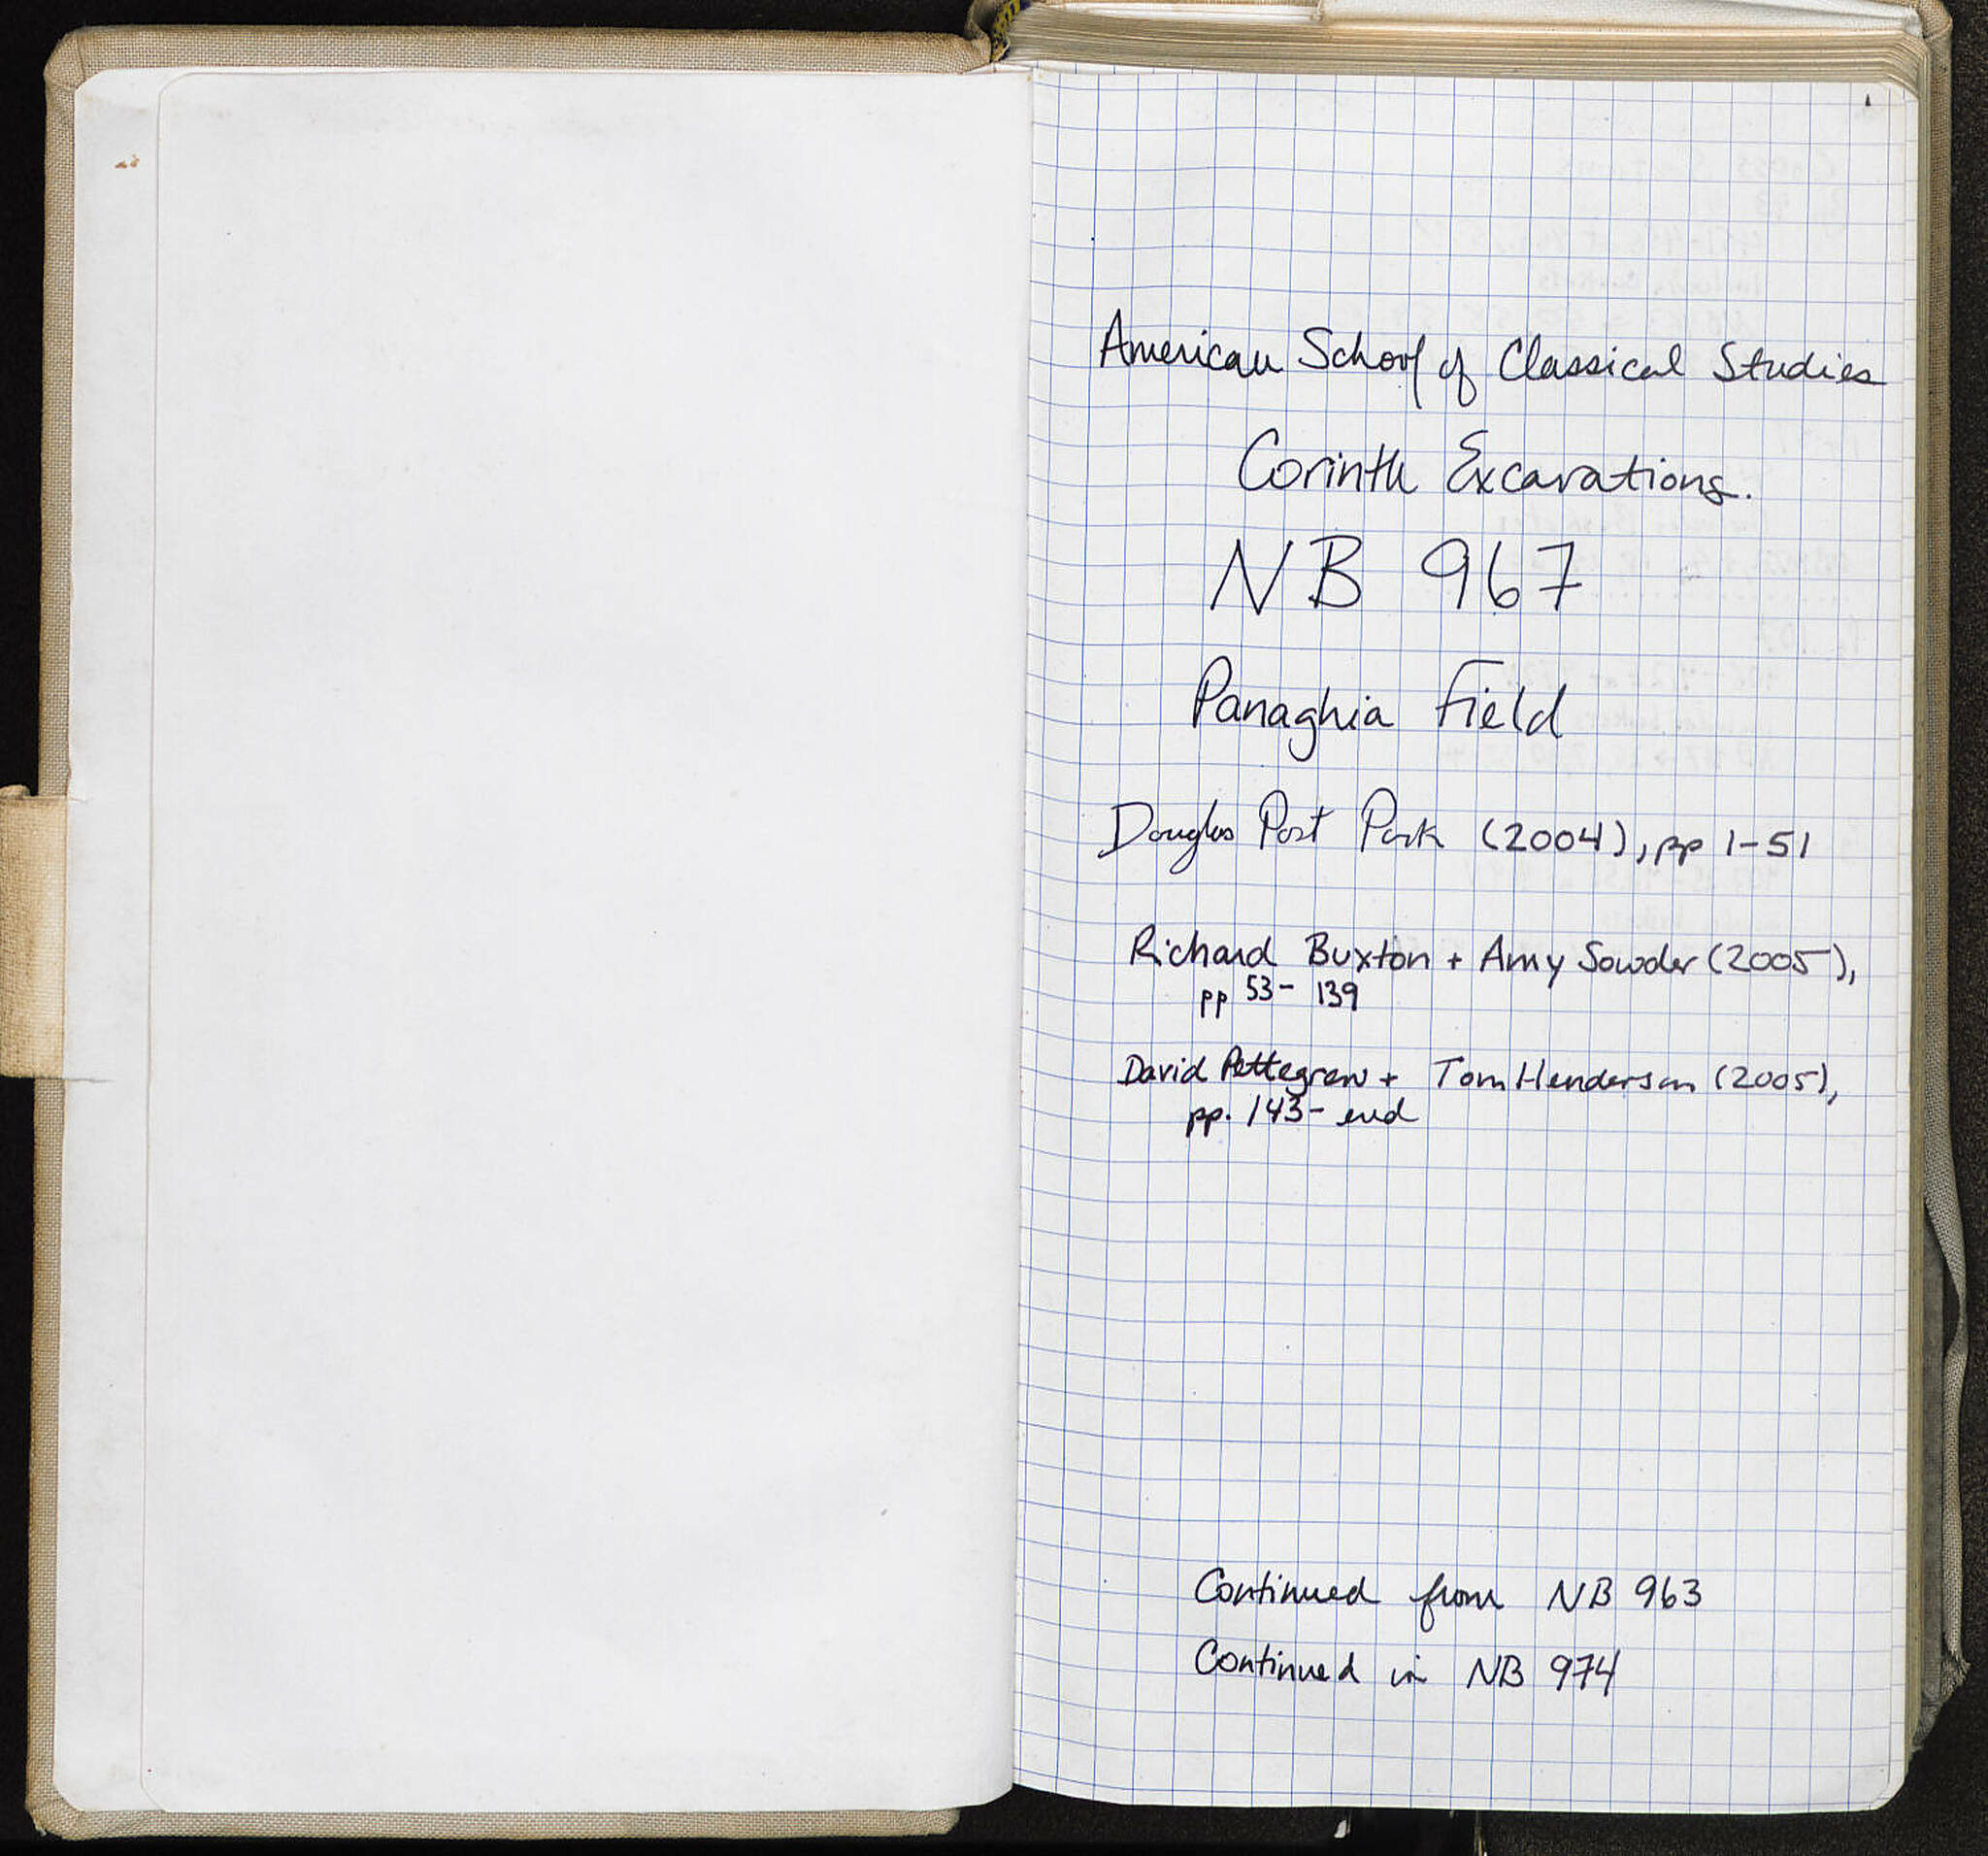 American School of Classical Studies
Corinth Excavations.
NB 967
Panaghia Field
Douglas Post Park (2004), pp 1-51
Richard Buxton + Amy Sowder (2005),
pp 53- 139
David Pettegrew + Tom Henderson (2005),
pp. 143- end
Continued from NB 963
Continued in NB 974